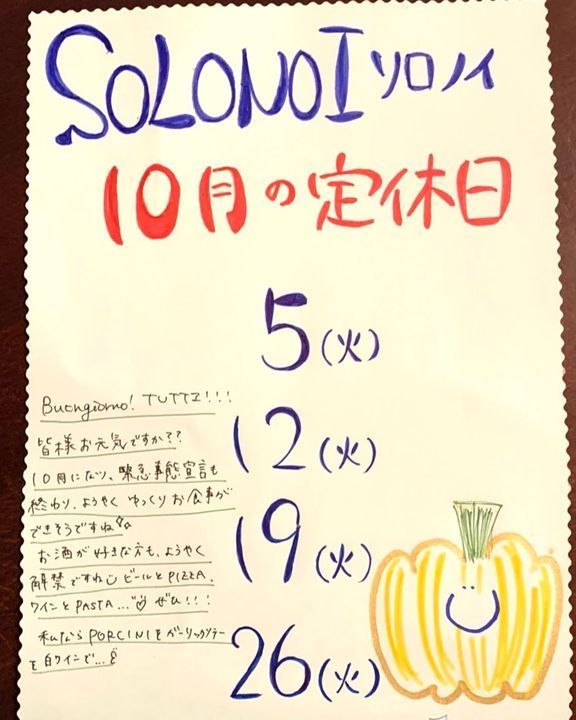 SOLONOI ソロノイ
10月の定休日
5(火)
12(火)
19(火)
26(火)
Buongiorno! TUTTI!!!
皆様お元気ですか??
10月になり、緊急事態宣言も
終わり、ようやくゆっくりお食事が
できそうですね
お酒が好きな方も、ようやく
解禁ですね ビールとPIZZA、
ワインとPASTA... ぜひ!!!
私なら PORCINIをガーリックソテー
を白ワインで...